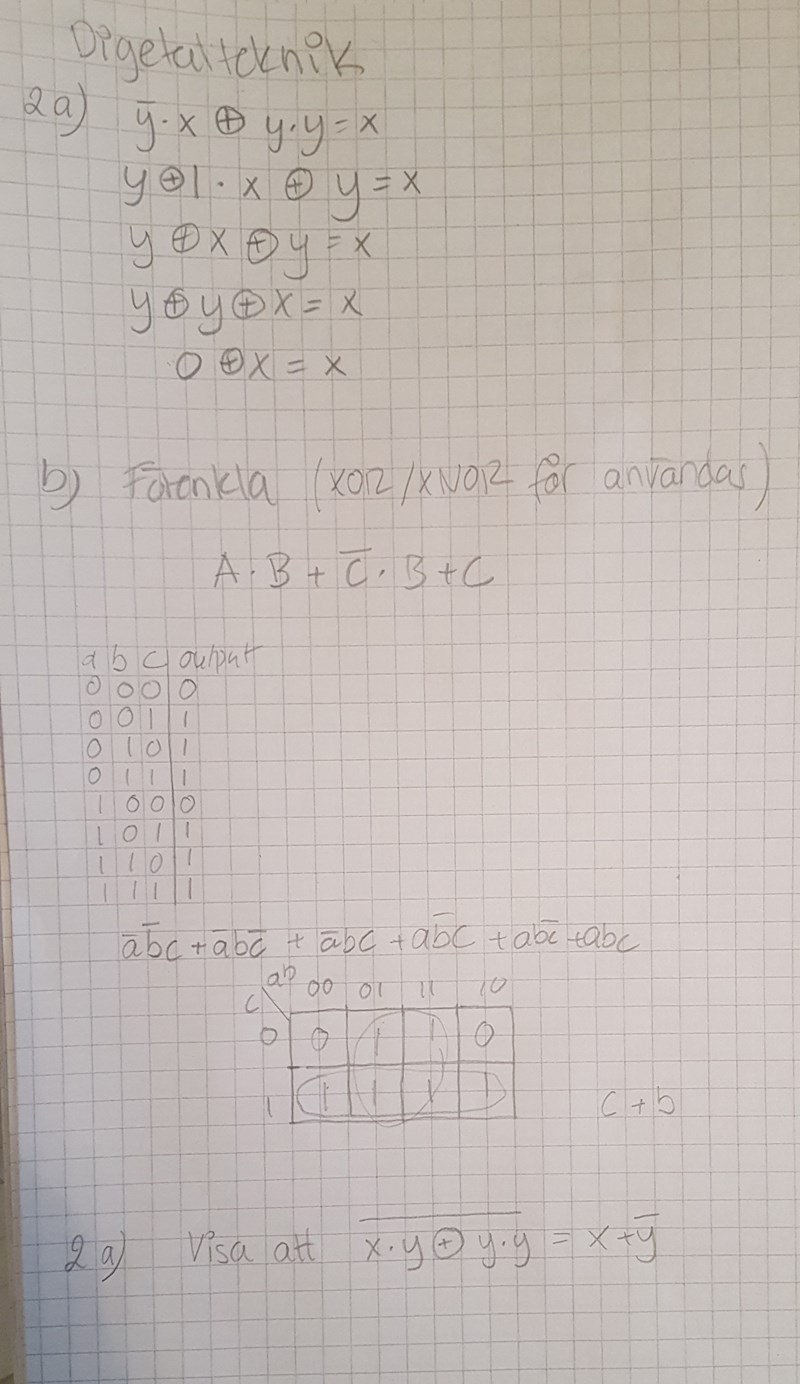 Digetalteknik
2a) y̅·x ⊕ y·y = x
y⊕1·x ⊕ y = x
y ⊕ x ⊕ y = x
y⊕y⊕x = x
0 ⊕x = x
b) Förenkla (XOR/XNOR får användas)
A·B + C̅·B + C
a b c output
0 0 0 0
0 0 1 1
0 1 0 1
0 1 1 1
1 0 0 0
1 0 1 1
1 1 0 1
1 1 1 1
a̅b̅c + a̅bc̅ + a̅bc + ab̅c + abc̅ + abc
ab 00 01 11 10
c
0 0 1 1 0
1 1 1 1 1
c + b
2a) Visa att x̅·̅y̅⊕̅y̅·̅y̅ = x + y̅